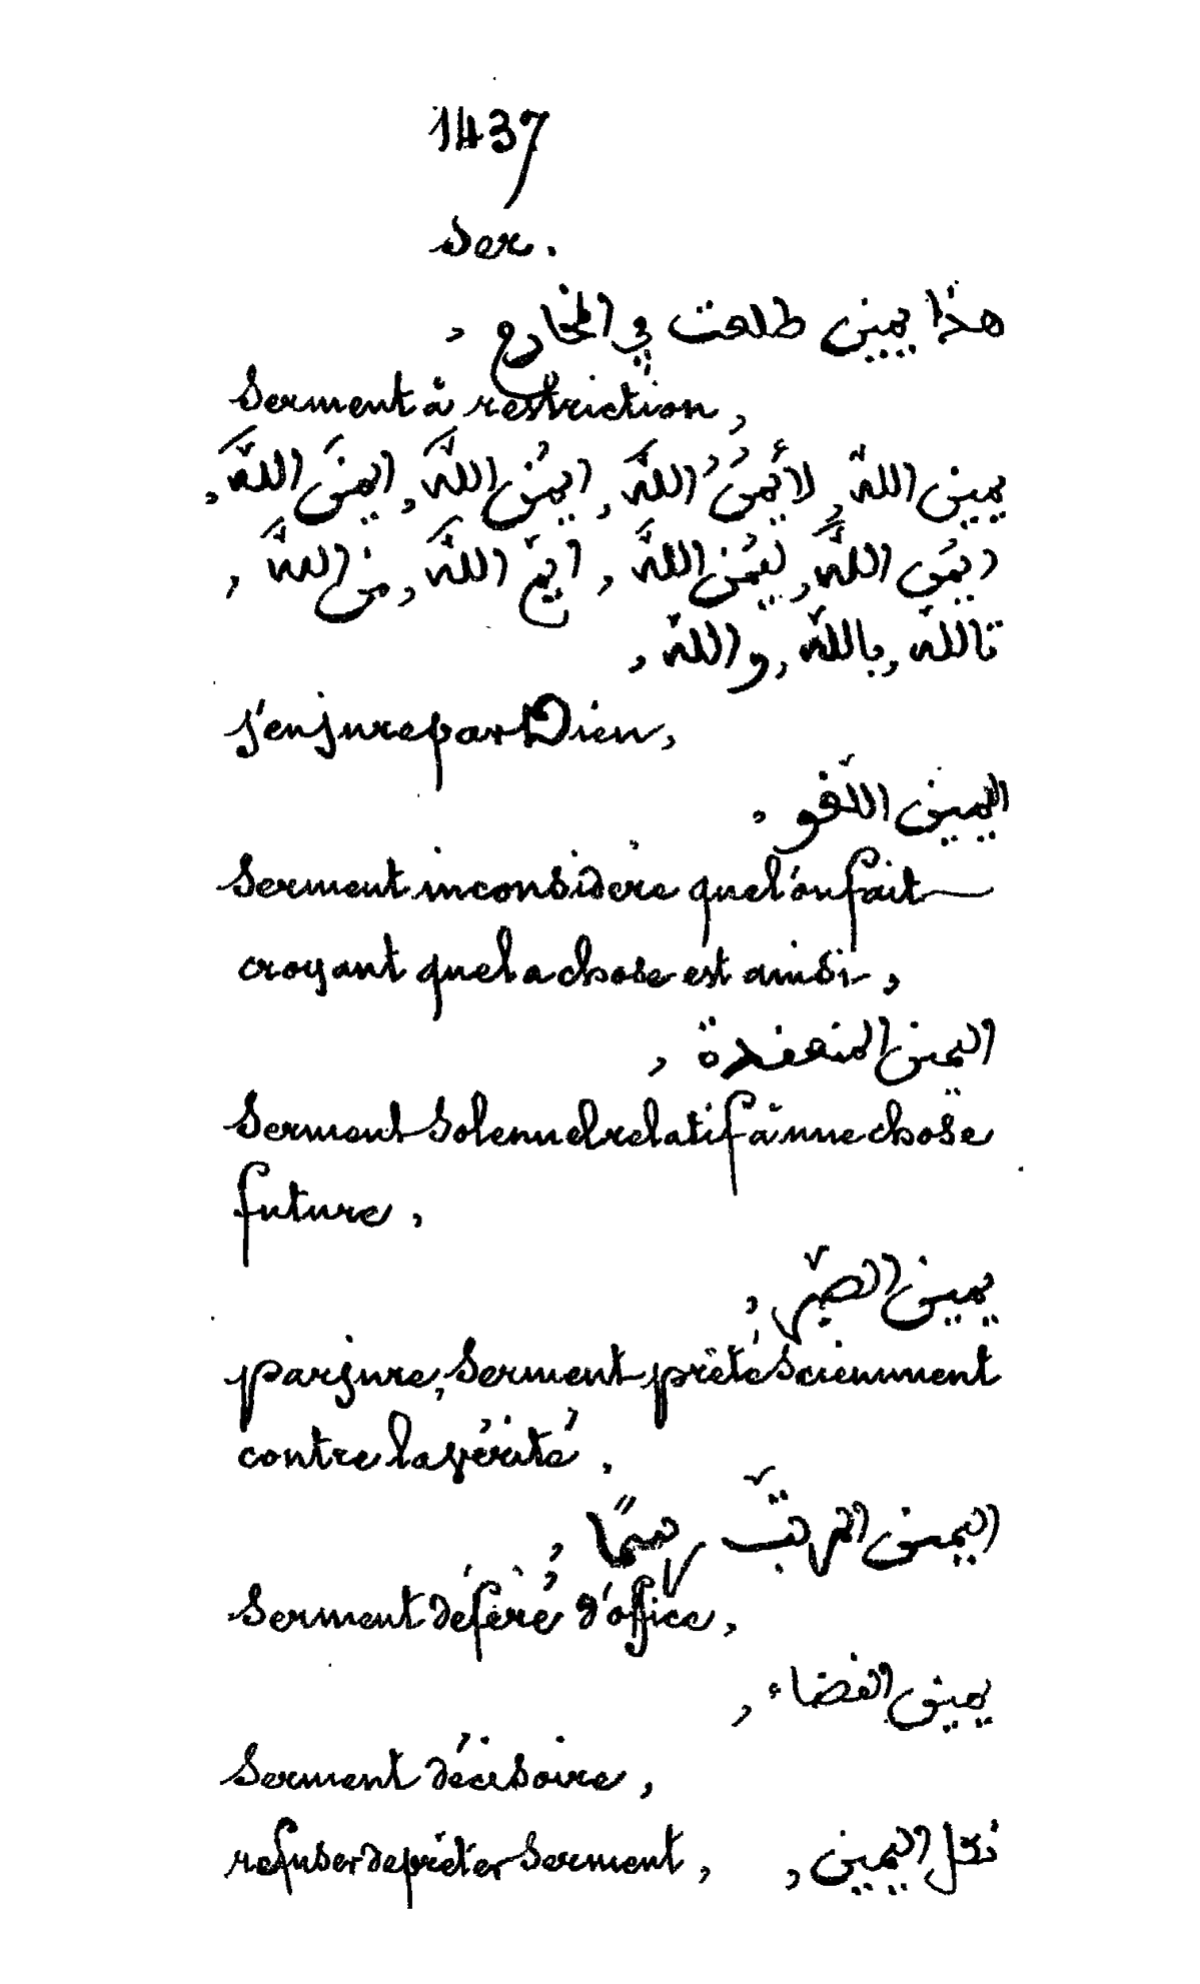 1437
Ser.
هذا يمين طلعت في المخارج ,
Serment à restriction,
يمين اللّه, لأيمُنُ اللّهَ, ايمُن اللّهَ, ايمَن اللّهَ,
ليمُن اللّهَ, ايمّ اللّهَ, من اللّهَ,
تاللّه, باللّه, واللّه,
j'en jure par Dieu,
اليمين اللّغو ,
Serment inconsidéré que l'on fait
croyant que la chose est ainsi,
اليمين المنعقدة ,
Serment solennel relatif à une chose
future,
يمين الصّبر ,
parjure, serment prêté sciemment
contre la vérité,
اليمين المرتّب رسمًا ,
Serment déféré d'office,
يمين القضاء ,
Serment décisoire,
refuser de prêter serment, نكل اليمين ,